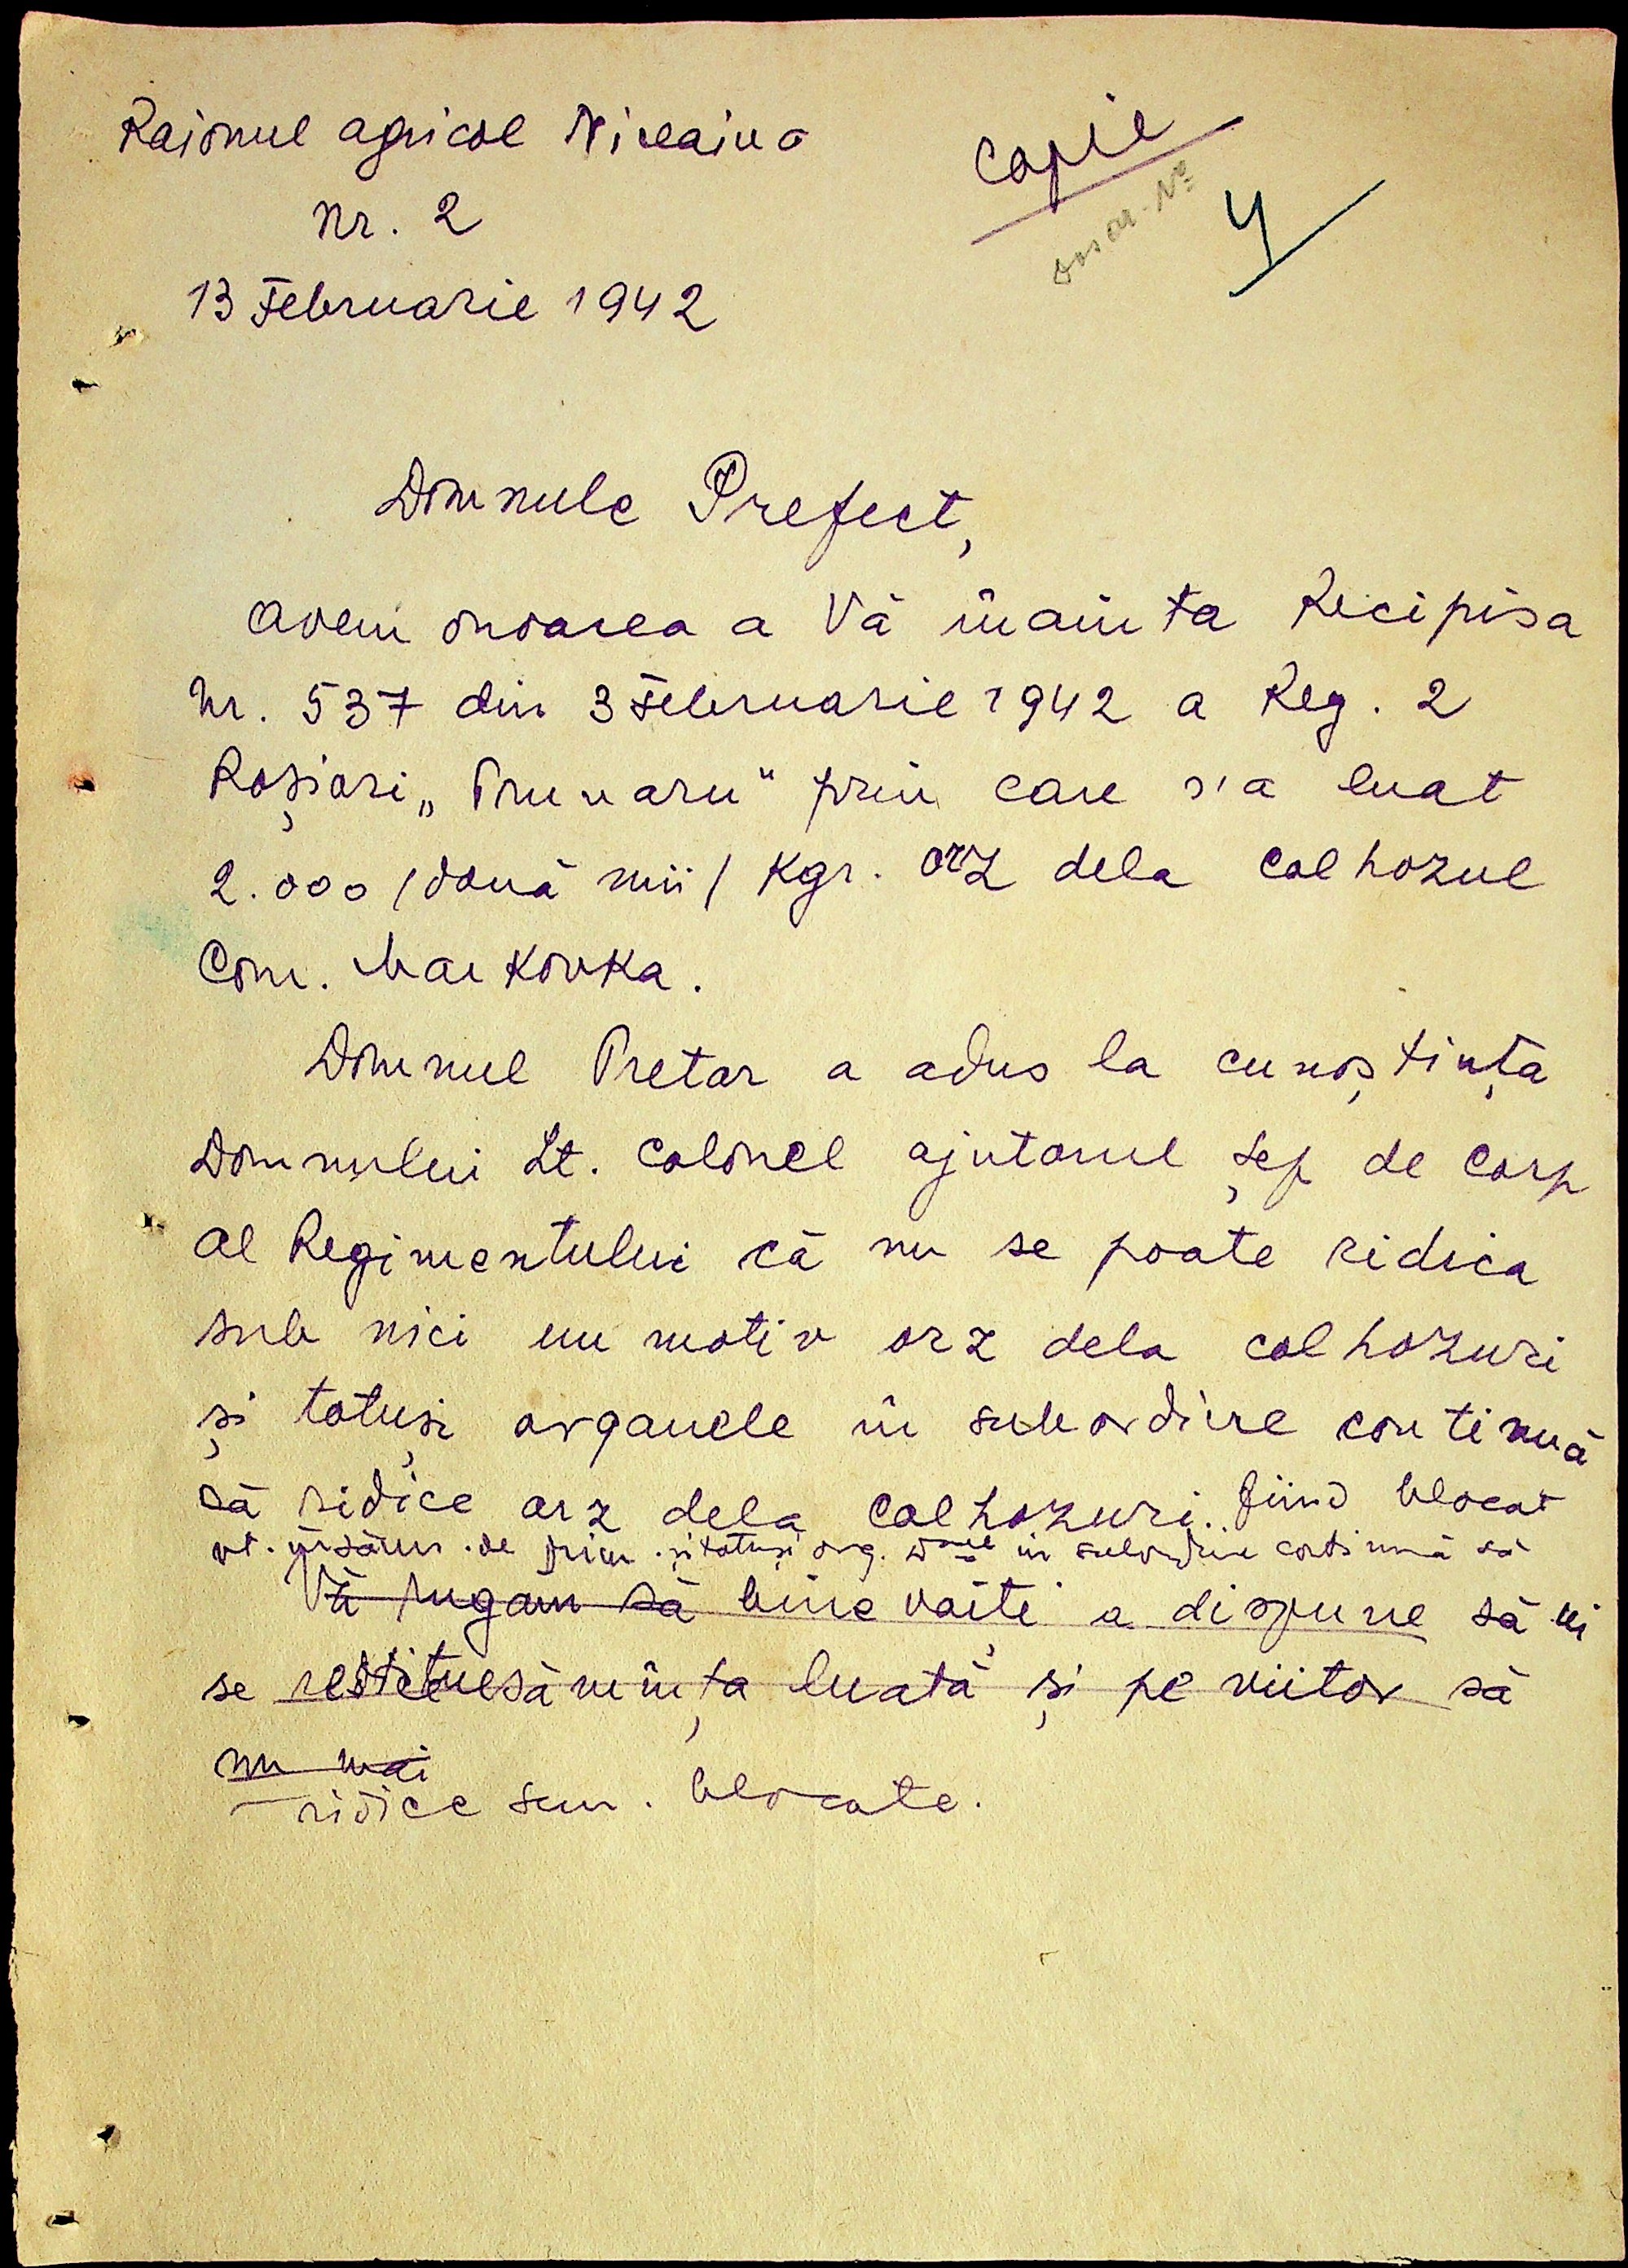 Raionul agricol Nicaiuo
Copie
Nr. 2
4
13 Februarie 1942
Domnule Prefect,
Avem onoarea a Vă înainta Recipisa
Nr. 537 din 3 Februarie 1942 a Reg. 2
Roșiori „Prunaru" prin care s'a luat
2.000 /două mii/ Kgr. orz dela colhozul
Com. Markovka.
Domnul Pretor a adus la cunoștința
Domnului Lt. Colonel ajutorul șef de Corp
al Regimentului că nu se poate ridica
sub nici un motiv orz dela colhozuri
și totuși organele în subordine continuă
să ridice orz dela Colhozuri. fiind blocat
pt. însăm. de prim. și totuși org. în subordine continuă să
Vă rugăm să binevoiți a dispune să ni
se restitue sămînța luată și pe viitor să
nu mai
ridice sem. blocate.